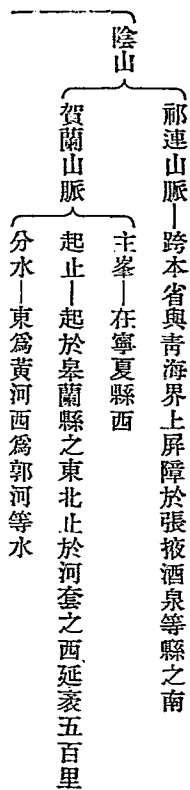 陰山
祁連山脈—跨本省與青海界上屏障於張掖酒泉等縣之南
賀蘭山脈
主峯—在寧夏縣西
起止—起於皋蘭縣之東北止於河套之西延袤五百里
分水—東爲黃河西爲郭河等水